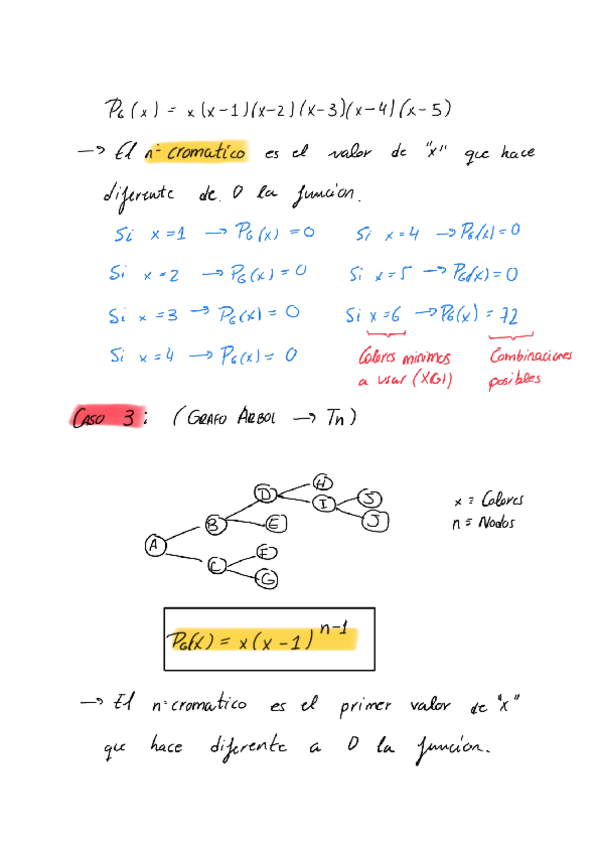 PG(x) = x(x-1)(x-2)(x-3)(x-4)(x-5)
→ El nº cromatico es el valor de "x" que hace
diferente de 0 la funcion.
Si x=1 → PG(x) = 0
Si x=4 → PG(x) = 0
Si x=2 → PG(x) = 0
Si x=5 → PG(x) = 0
Si x=3 → PG(x) = 0
Si x=6 → PG(x) = 72
Si x=4 → PG(x) = 0
Colores minimos
a usar (X(G))
Combinaciones
posibles
CASO 3: (GRAFO ARBOL → Tn)
D
H
I
S
J
B
E
A
C
F
G
x = Colores
n = Nodos
PG(x) = x(x-1)^n-1
→ El nº cromatico es el primer valor de "x"
que hace diferente a 0 la funcion.